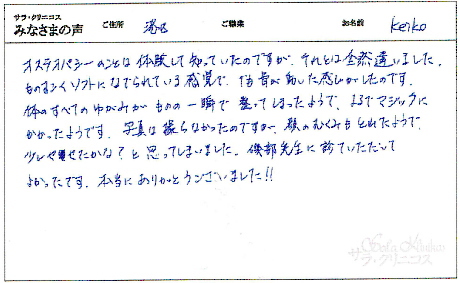 サラ・クリニコス
みなさまの声 ご住所 港区 ご職業 お名前 Keiko
オステオパシーのことは体験して知っていたのですが、それとは全然違いました。
ものすごくソフトになでられている感覚で、骨が動いた感じがしたのです。
体のすべてのゆがみがものの一瞬で整ってしまったようで、まるでマジックに
かかったようです。写真は撮らなかったのですが、顔のむくみもとれたようで
少しやせたかな？と思ってしまいました。磯部先生に診ていただいて
よかったです。本当にありがとうございました!!
サラ・クリニコス